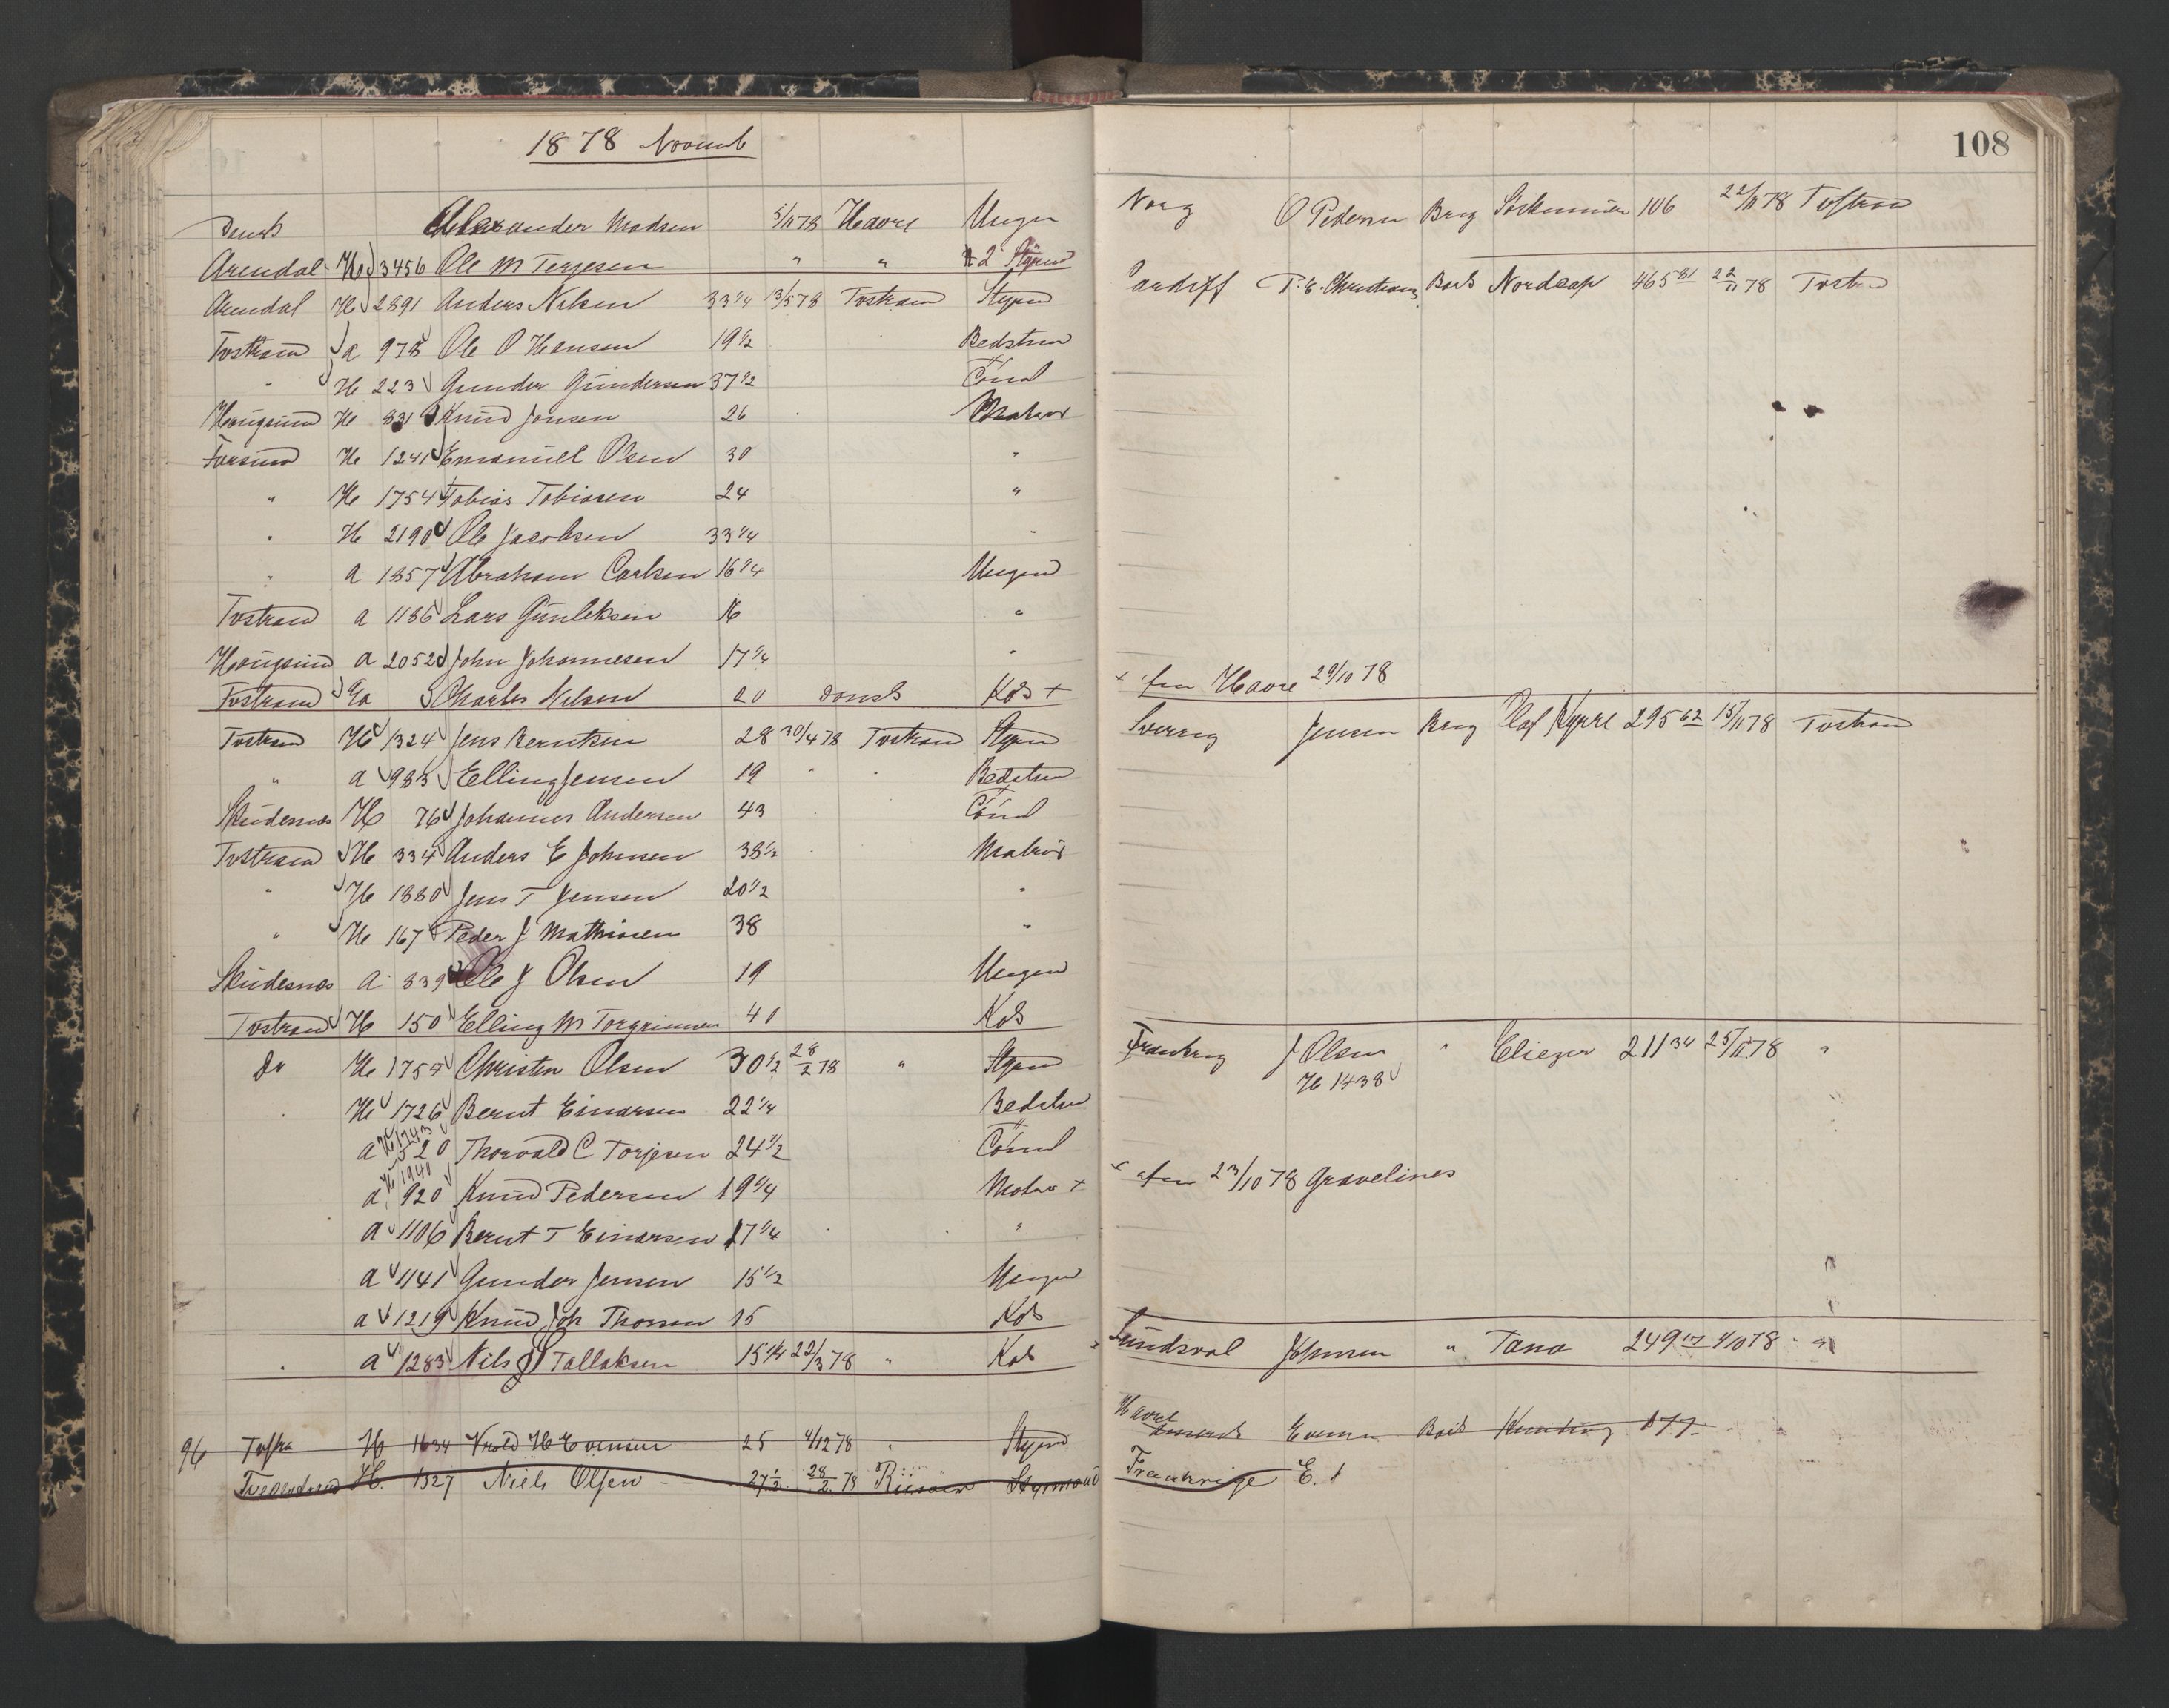 1878 Novemb
108
Dansk Alexander Madsen 5/11 78 Havre Ungm Norg O Pedersen Brig 106 22/11 78 Tvstrand
Arendal H 3456 Ole M Terjesen " " 2 Styrm
Arendal H 2891 Anders Nilsen 33 1/4 13/5 78 Tvstrand Styrm Cardiff P. E. Christians Bark Nordcap 465 81 22/11 78 Tvstrand
Tvstrand a 978 Ole O Hansen 19 1/2 Bedstm
" H 223 Gunder Gundersen 37 1/2 Tömd
Haugsund H 831 Knud Jonsen 26 Matros
Farsund H 1241 Emanuel Olsen 30 "
" H 1754 Tobias Tobiasen 24 "
" H 2190 Ole Jacobsen 33 1/4 "
" a 1357 Abraham Carlsen 16 1/4 Ungm
Tvstrand a 1186 Lars Gunleksen 16 "
Haugsund a 2052 John Johannesen 17 1/4 "
Tvstrand Charles Nilsen 20 dansk Kok + × afm Havre 29/10 78
Tvstrand H 1324 Jens Berntsen 28 30/4 78 Tvstrand Styrm Sverrig Jensen Brig Olaf Kyrre 295 62 15/11 78 Tvstrand
" a 983 Elling Jensen 19 " " Bedstm
Skudesnes H 76 Johannes Andersen 43 Tömd
Tvstrand H 334 Anders E Johnsen 38 1/2 Matros
" H 1880 Jens T Jensen 20 1/2 "
" H 167 Peder J Mathiasen 38 "
Skudesnes a 839 Ole J Olsen 19 Ungm
Tvstrand H 150 Elling M Torgrimsen 40 Kok
Do H 1754 Christen Olsen 30 1/2 28/2 78 " Styrm Frankrig J Olsen " Eliezer 211 34 25/11 78 "
H 1438
" H 1726 Bernt Einarsen 22 1/4 Bedstm
H 1743
a 520 Thorvald C Torjesen 24 1/2 Tömd
H 1940
a 920 Knud Pedersen 19 1/4 Matro + × afm 23/10 78 Gravelines
a 1106 Bernt T Einarsen 17 1/4 "
a 1141 Gunder Jensen 15 1/2 Ungm
a 1219 Knud Joh Thorsen 15 Kok
" a 1283 Nils J Tallaksen 15 1/4 22/3 78 " Kok Sundsval Johnsen " Tana 249 17 4/10 78 "
96 Tvstra H 1634 H Evensen 25 4/12 78 " Styrm Havre Evensen Bark 177
Tvedestrand H. 1327 Niels Olsen 27 1/2 28/2 78 Riisöer Styrmand Frankrige E. 1